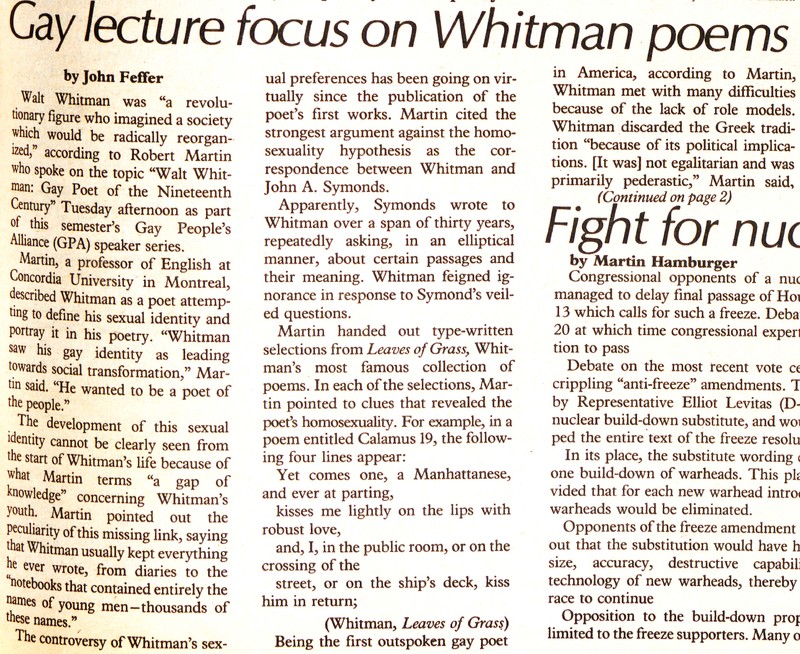 Gay lecture focus on Whitman poems
by John Feffer
Walt Whitman was “a revolu-
tionary figure who imagined a society
which would be radically reorgan-
ized,” according to Robert Martin
who spoke on the topic “Walt Whit-
man: Gay Poet of the Nineteenth
Century” Tuesday afternoon as part
of this semester’s Gay People’s
Alliance (GPA) speaker series.
Martin, a professor of English at
Concordia University in Montreal,
described Whitman as a poet attemp-
ting to define his sexual identity and
portray it in his poetry. “Whitman
saw his gay identity as leading
towards social transformation,” Mar-
tin said. “He wanted to be a poet of
the people.”
The development of this sexual
identity cannot be clearly seen from
the start of Whitman’s life because of
what Martin terms “a gap of
knowledge” concerning Whitman’s
youth. Martin pointed out the
peculiarity of this missing link, saying
that Whitman usually kept everything
he ever wrote, from diaries to the
“notebooks that contained entirely the
names of young men—thousands of
these names.”
The controversy of Whitman’s sex-
ual preferences has been going on vir-
tually since the publication of the
poet’s first works. Martin cited the
strongest argument against the homo-
sexuality hypothesis as the cor-
respondence between Whitman and
John A. Symonds.
Apparently, Symonds wrote to
Whitman over a span of thirty years,
repeatedly asking, in an elliptical
manner, about certain passages and
their meaning. Whitman feigned ig-
norance in response to Symond’s veil-
ed questions.
Martin handed out type-written
selections from Leaves of Grass, Whit-
man’s most famous collection of
poems. In each of the selections, Mar-
tin pointed to clues that revealed the
poet’s homosexuality. For example, in a
poem entitled Calamus 19, the follow-
ing four lines appear:
Yet comes one, a Manhattanese,
and ever at parting,
kisses me lightly on the lips with
robust love,
and, I, in the public room, or on the
crossing of the
street, or on the ship’s deck, kiss
him in return;
(Whitman, Leaves of Grass)
Being the first outspoken gay poet
in America, according to Martin,
Whitman met with many difficulties
because of the lack of role models.
Whitman discarded the Greek tradi-
tion “because of its political implica-
tions. [It was] not egalitarian and was
primarily pederastic,” Martin said,
(Continued on page 2)
Fight for nuc
by Martin Hamburger
Congressional opponents of a nuc
managed to delay final passage of Hou
13 which calls for such a freeze. Deba
20 at which time congressional expert
tion to pass
Debate on the most recent vote ce
crippling “anti-freeze” amendments. T
by Representative Elliot Levitas (D-
nuclear build-down substitute, and wou
ped the entire text of the freeze resolu
In its place, the substitute wording
one build-down of warheads. This pla
vided that for each new warhead introd
warheads would be eliminated.
Opponents of the freeze amendment
out that the substitution would have h
size, accuracy, destructive capabili
technology of new warheads, thereby
race to continue
Opposition to the build-down prop
limited to the freeze supporters. Many o